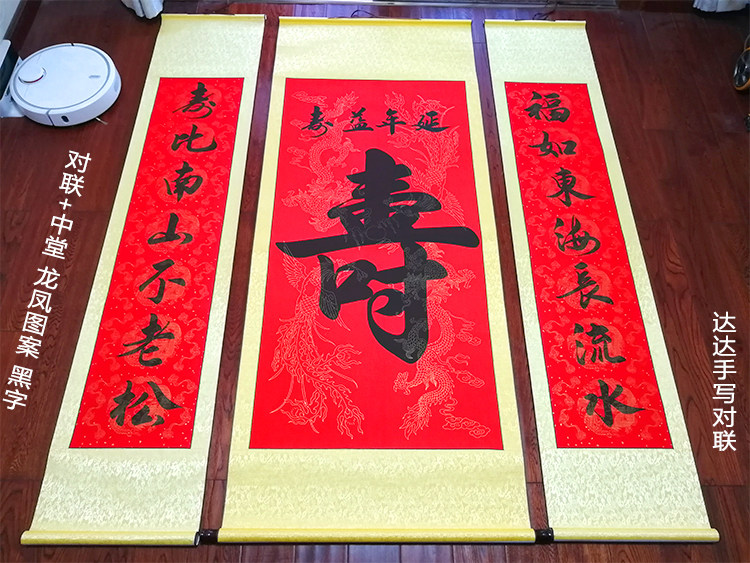 福如東海長流水
延年益寿
壽
寿比南山不老松
对联+中堂 龙凤图案 黑字
达达手写对联